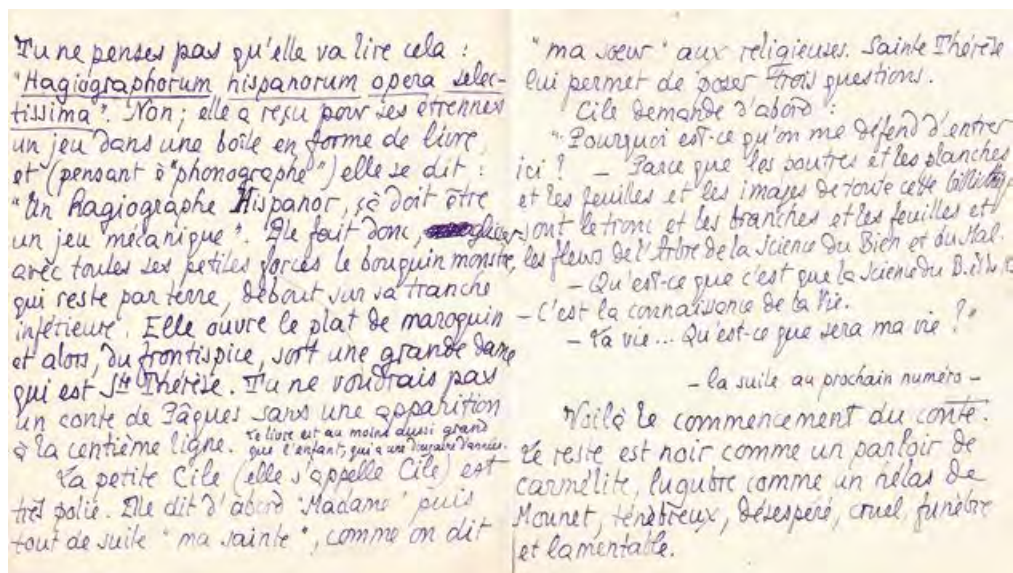 Tu ne penses pas qu'elle va lire cela :
"Hagiographorum hispanorum opera selec-
tissima". Non ; elle a reçu pour ses étrennes
un jeu dans une boîte en forme de livre,
et (pensant à "phonographe") elle se dit :
"Un hagiographe Hispanor, ça doit être
un jeu mécanique". Elle fait donc, glisser
avec toutes ses petites forces le bouquin monstre,
qui reste par terre, debout sur sa tranche
inférieure. Elle ouvre le plat de maroquin
et alors, du frontispice, sort une grande dame
qui est Ste Thérèse. Tu ne voudrais pas
un conte de Pâques sans une apparition
à la centième ligne. Le livre est au moins aussi grand
que l'enfant, qui a une douzaine d'années.
La petite Cile (elle s'appelle Cile) est
très polie. Elle dit d'abord "Madame" puis
tout de suite "ma sainte", comme on dit
"ma sœur" aux religieuses. Sainte Thérèse
lui permet de poser trois questions.
Cile demande d'abord :
"Pourquoi est-ce qu'on me défend d'entrer
ici ? – Parce que les poutres et les planches
et les feuilles et les images de toute cette bibliothèque
sont le tronc et les branches et les feuilles et
les fleurs de l'Arbre de la Science du Bien et du Mal.
– Qu'est-ce que c'est que la Science du B. et du M.
– C'est la connaissance de la Vie.
– La vie... Qu'est-ce que sera ma vie ?"
– la suite au prochain numéro –
Voilà le commencement du conte.
Le reste est noir comme un parloir de
carmélite, lugubre comme un hélas de
Mounet, ténébreux, désespéré, cruel, funèbre
et lamentable.